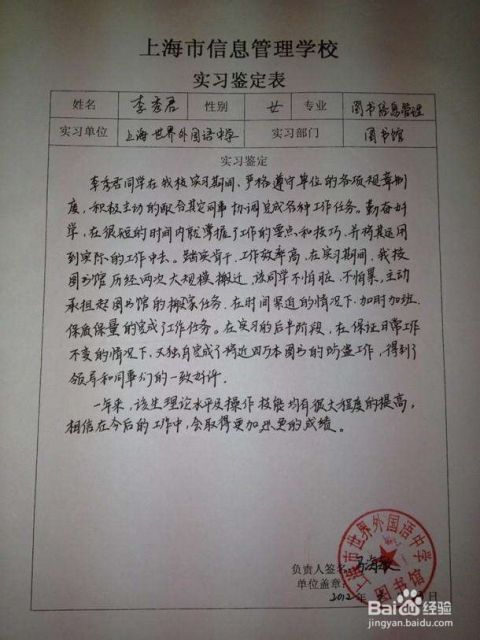 上海市信息管理学校
实习鉴定表
姓名 李秀君 性别 女 专业 图书信息管理
实习单位 上海世界外国语中学 实习部门 图书馆
实习鉴定
李秀君同学在我校实习期间、严格遵守单位的各项规章制
度,积极主动的配合其它同事协调完成各种工作任务。勤奋好
学,在很短的时间内就掌握了工作的要点和技巧,并将其运用
到实际的工作中去。踏实肯干,工作效率高,在实习期间,我校
图书馆历经两次大规模搬迁,该同学不怕脏、不怕累,主动
承担起图书馆的搬家任务,在时间紧迫的情况下,加时加班,
保质保量的完成了工作任务。在实习的后半阶段,在保证日常工作
不变的情况下,又独自完成了将近四万本图书的防盗工作,得到了
领导和同事们的一致好评.
一年来,该生理论水平及操作技能均有很大程度的提高,
相信在今后的工作中,会取得更加的成绩。
负责人签名
单位盖章:
2012年
上海市世界外国语中学
图书馆
Baidu经验
jingyan.baidu.com